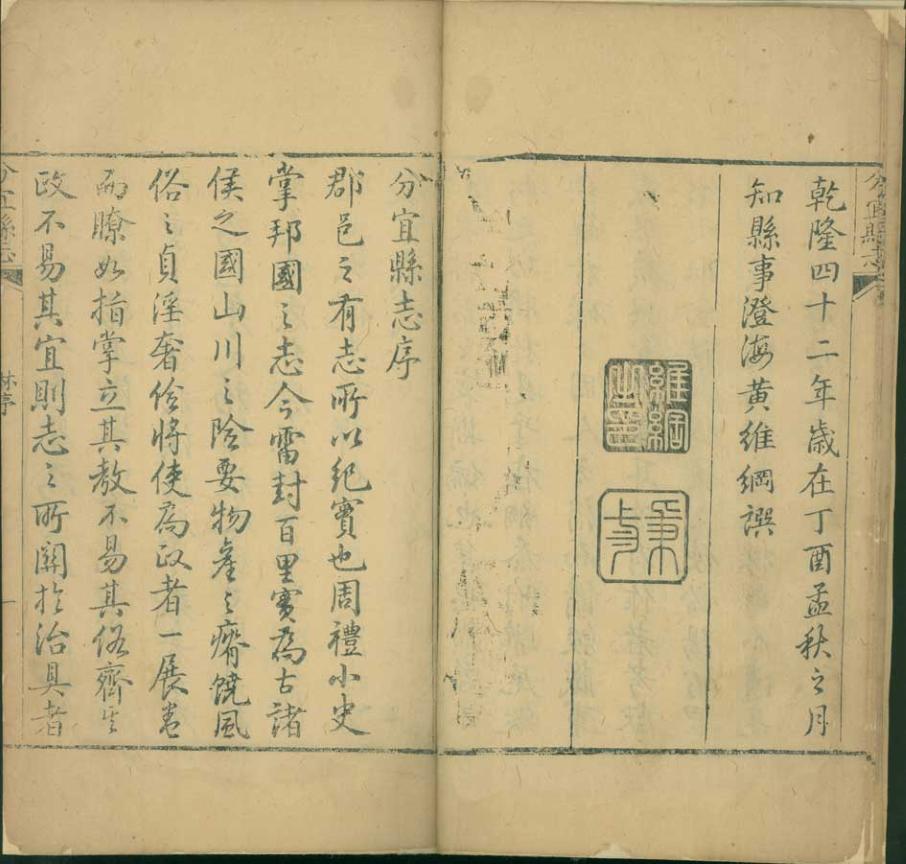 乾隆四十二年歲在丁酉孟秋之月
知縣事澄海黃維綱譔
維綱之印
分宜縣志序
郡邑之有志所以紀實也周禮小史
掌邦國之志今雷封百里實為古諸
侯之國山川之險要物產之瘠饒風
俗之貞淫奢儉將使為政者一展卷
而瞭如指掌立其教不易其俗齊其
政不易其宜則志之所關於治具者
分宜縣志
林序
一